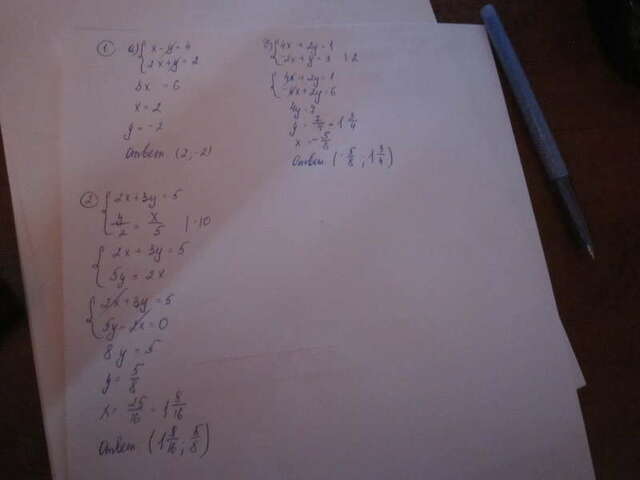 ① a) { x - y = 4
2x + y = 2
3x = 6
x = 2
y = -2
Ответ (2, -2)
б) { 4x + 2y = 1
-2x + y = 3 |·2
{ 4x + 2y = 1
-4x + 2y = 6
4y = 7
y = 7/4 = 1 3/4
x = -5/8
Ответ (-5/8 ; 1 3/4)
② { 2x + 3y = 5
y/2 = x/5 | ·10
{ 2x + 3y = 5
5y = 2x
{ 2x + 3y = 5
5y - 2x = 0
8y = 5
y = 5/8
x = 25/16 = 1 9/16
Ответ (1 9/16 ; 5/8)